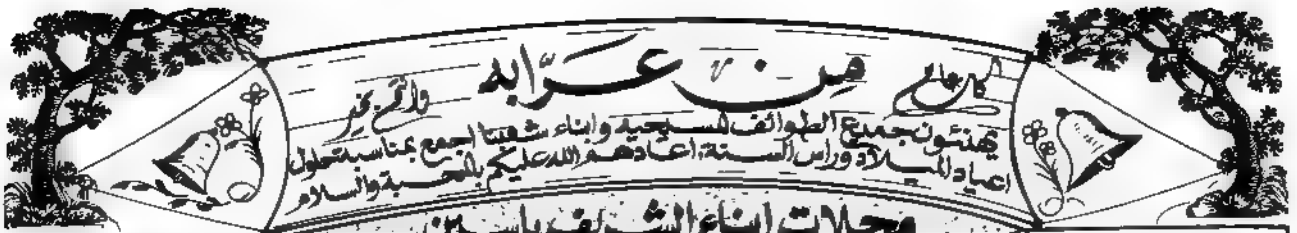 كل عام
من عرّابه
وانتم بخير
يهنئون جميع الطوائف المسيحيه وابناء شعبنا اجمع بمناسبة حلول
اعياد الميلاد وراس السنة، اعادهم الله عليكم بالمحبة والسلام
محلات ابناء الشريف ياسين